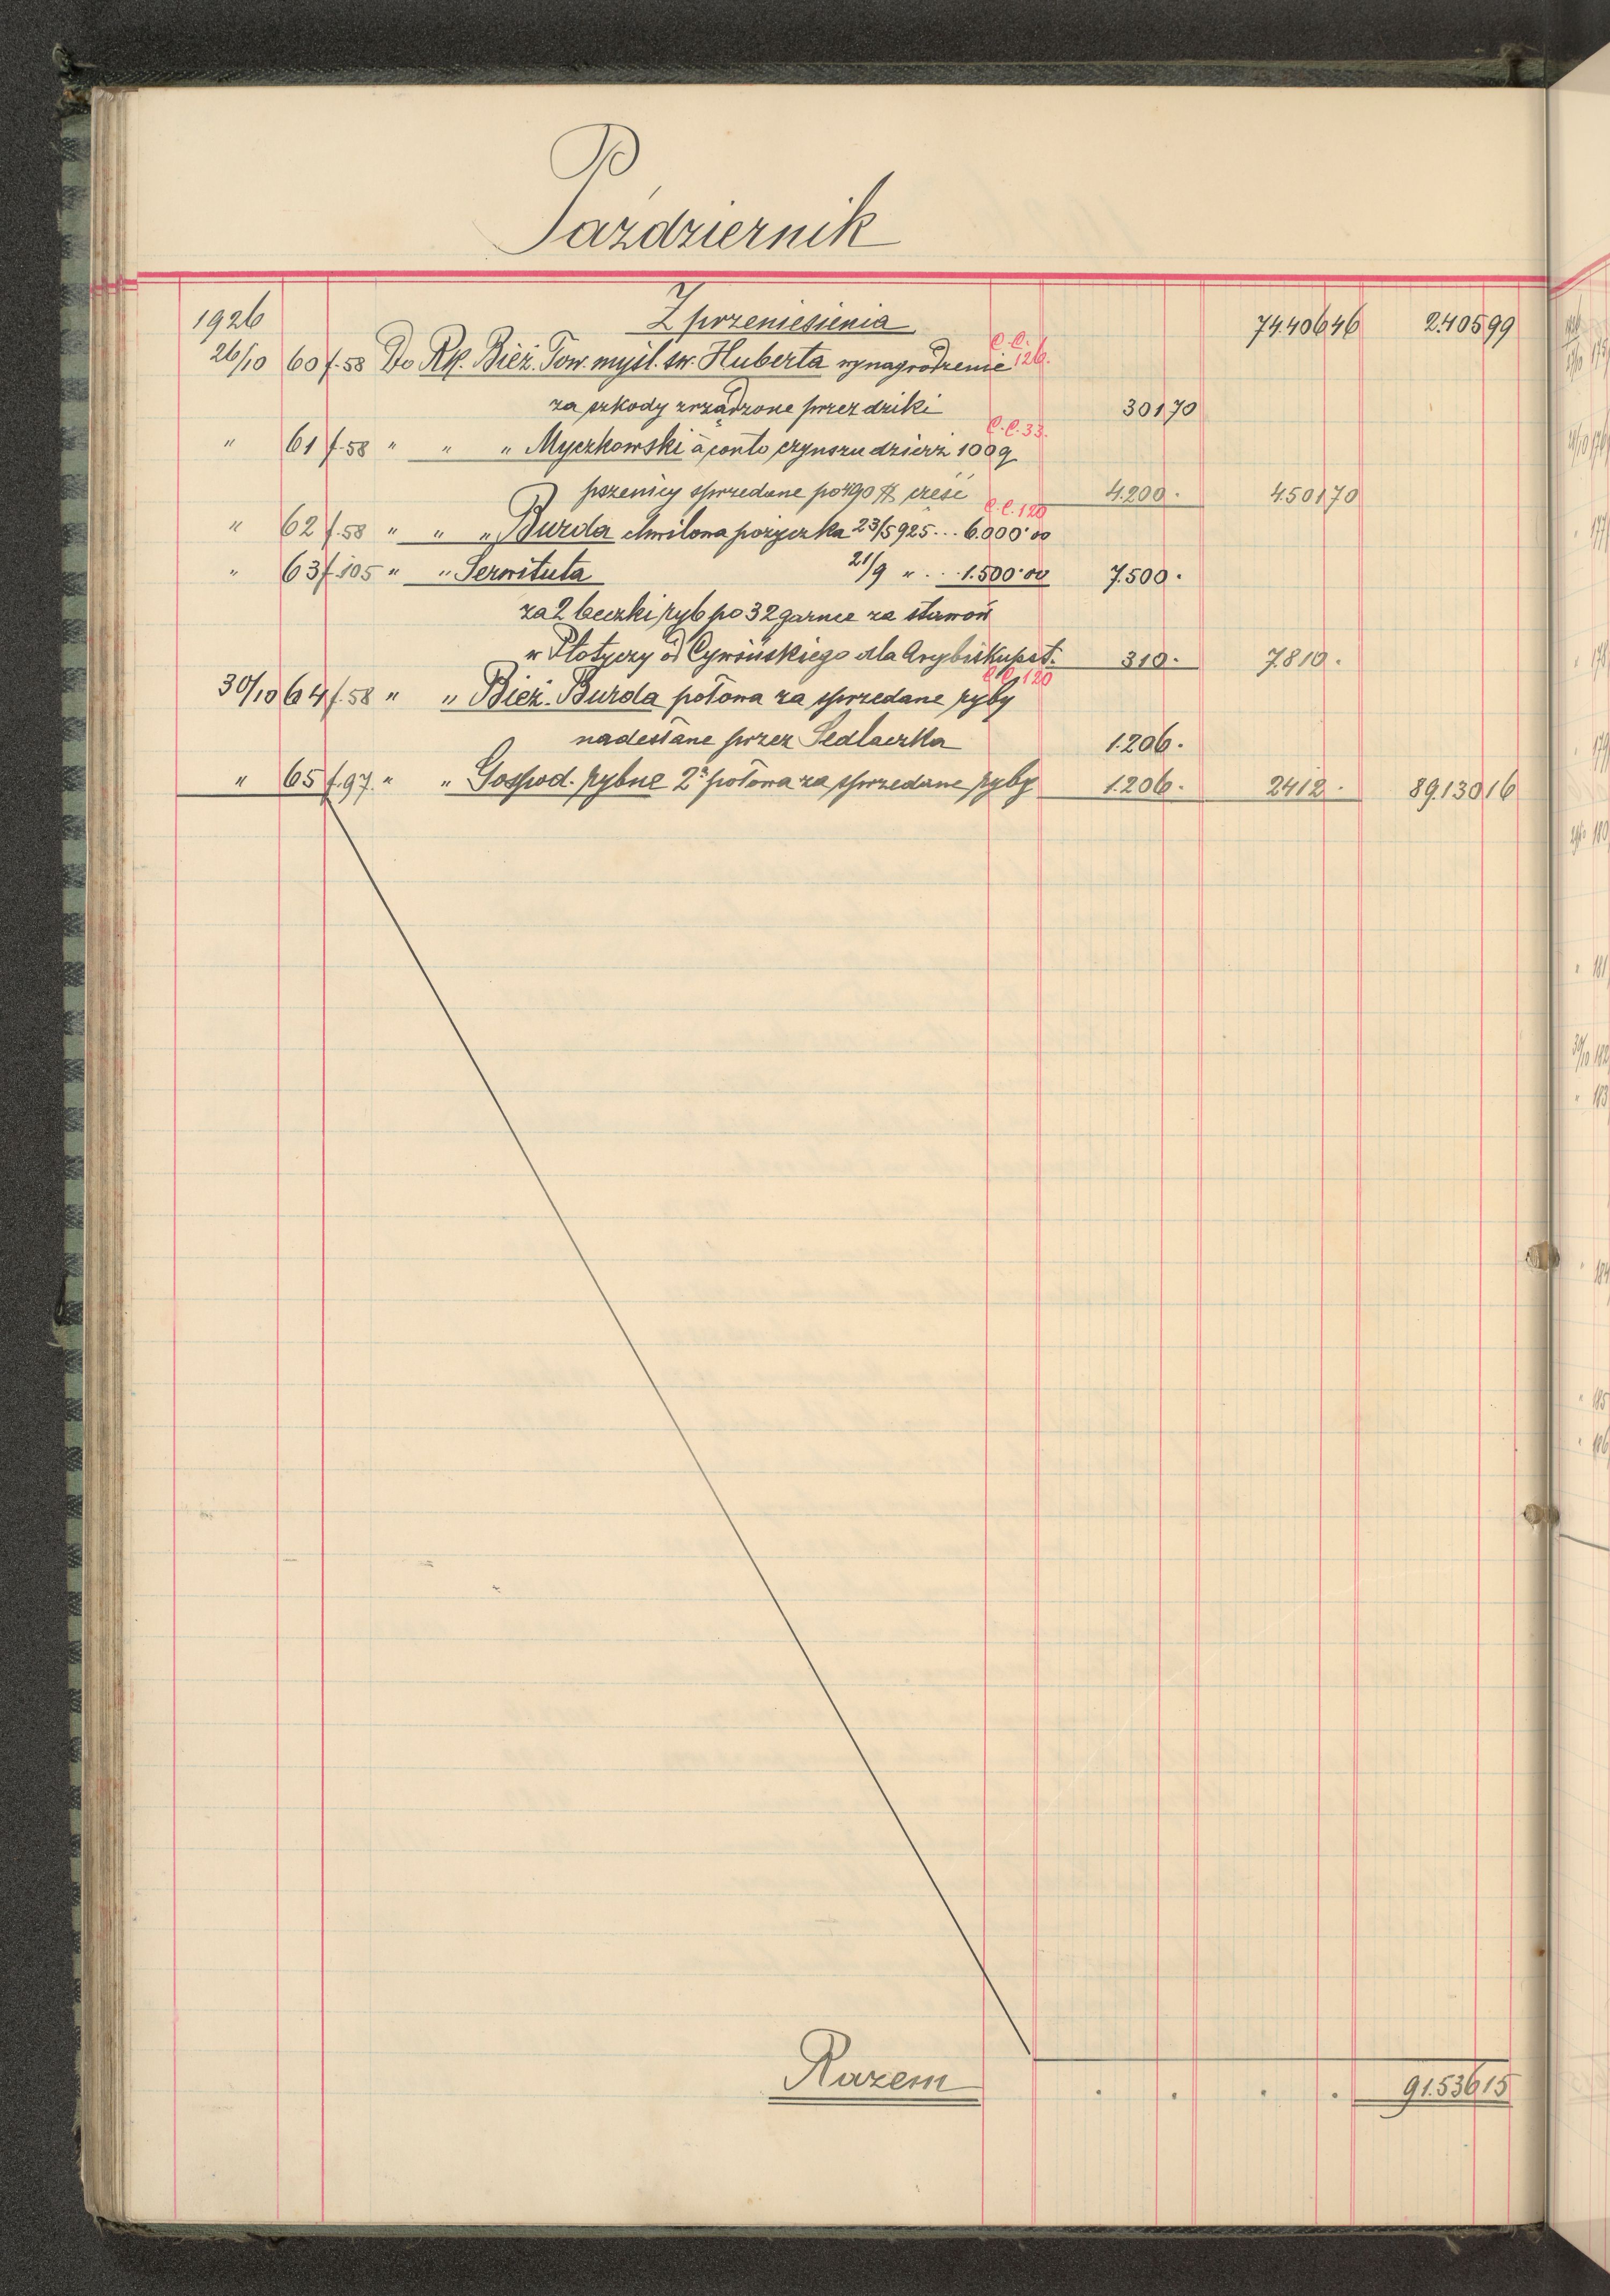 Październik
1926 Z przeniesienia 74.406 46 2.405 99
26/10 60 f. 58 Do Rk. Bież. Tow. myśl. św. Huberta wynagrodzenie C.C. 126.
za szkody zrządzone przez dziki 301 70
" 61 f. 58 " " " Myczkowski à conto czynszu dzierż 100 q C.C. 33.
pszenicy sprzedane po 490 część 4.200 . 4.501 70
" 62 f. 58 " " " Burda chwilowa pożyczka 23/5 925 ... 6.000·00 C.C. 120
" 63 f. 105 " " Serwituta 21/9 " ... 1.500·00 7.500 .
za 2 beczki ryb po 32 garnce za
w Płotyczy od Cywińskiego dla Arcybiskupst. 310 . 7.810 .
30/10 64 f. 58 " " Bież. Burda połowa za sprzedane ryby C.C. 120
nadesłane przez Sedlaczka 1.206 .
" 65 f. 97. " " Gospod. rybne 2ª połowa za sprzedane ryby 1.206 . 2412 . 89.130 16
Razem . . . . 91.536 15